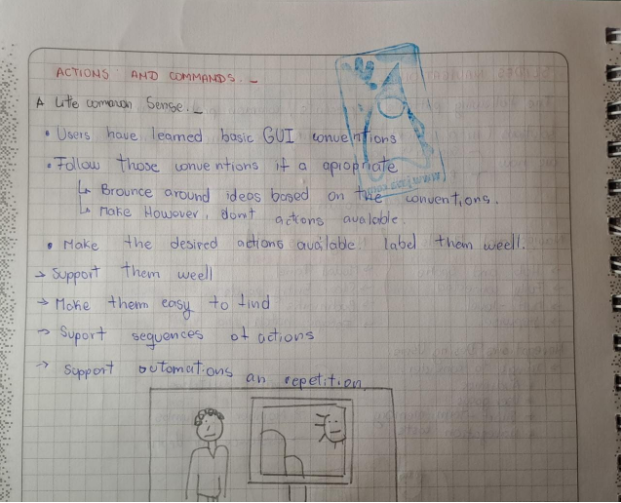 ACTIONS AND COMMANDS._
A Litle common Sense._
• Users have learned basic GUI conventions
• Follow those conventions if a apropriate
↳ Brounce around ideas based on the conventions.
↳ Make However, don't actions available.
• Make the desired actions available. label them weell.
→ Support them weell
→ Make them easy to find
→ Suport sequences of actions
→ Support automations an repetition